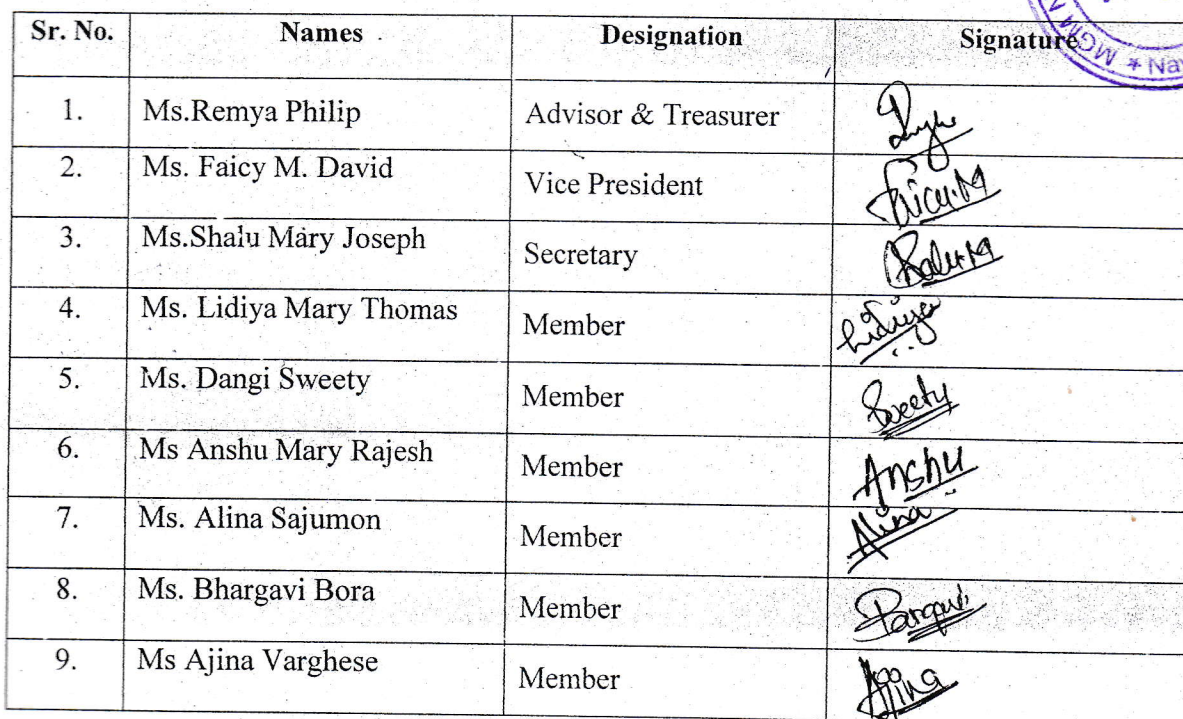 Sr. No. Names Designation Signature
MGM
* Nav
1. Ms.Remya Philip Advisor & Treasurer
2. Ms. Faicy M. David Vice President Faicy.M
3. Ms.Shalu Mary Joseph Secretary Shalu.M
4. Ms. Lidiya Mary Thomas Member Lidiya
5. Ms. Dangi Sweety Member Sweety
6. Ms Anshu Mary Rajesh Member Anshu
7. Ms. Alina Sajumon Member Alina
8. Ms. Bhargavi Bora Member
9. Ms Ajina Varghese Member Ajina